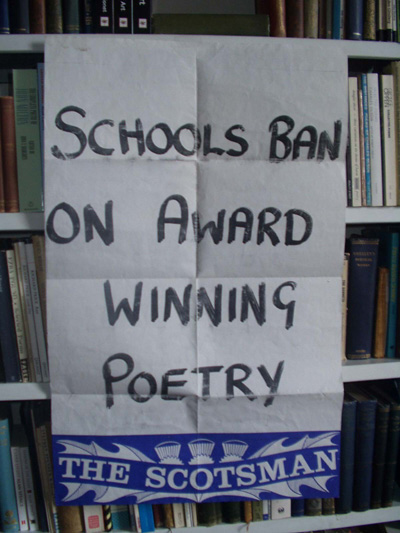 SCHOOLS BAN
ON AWARD
WINNING
POETRY
THE SCOTSMAN